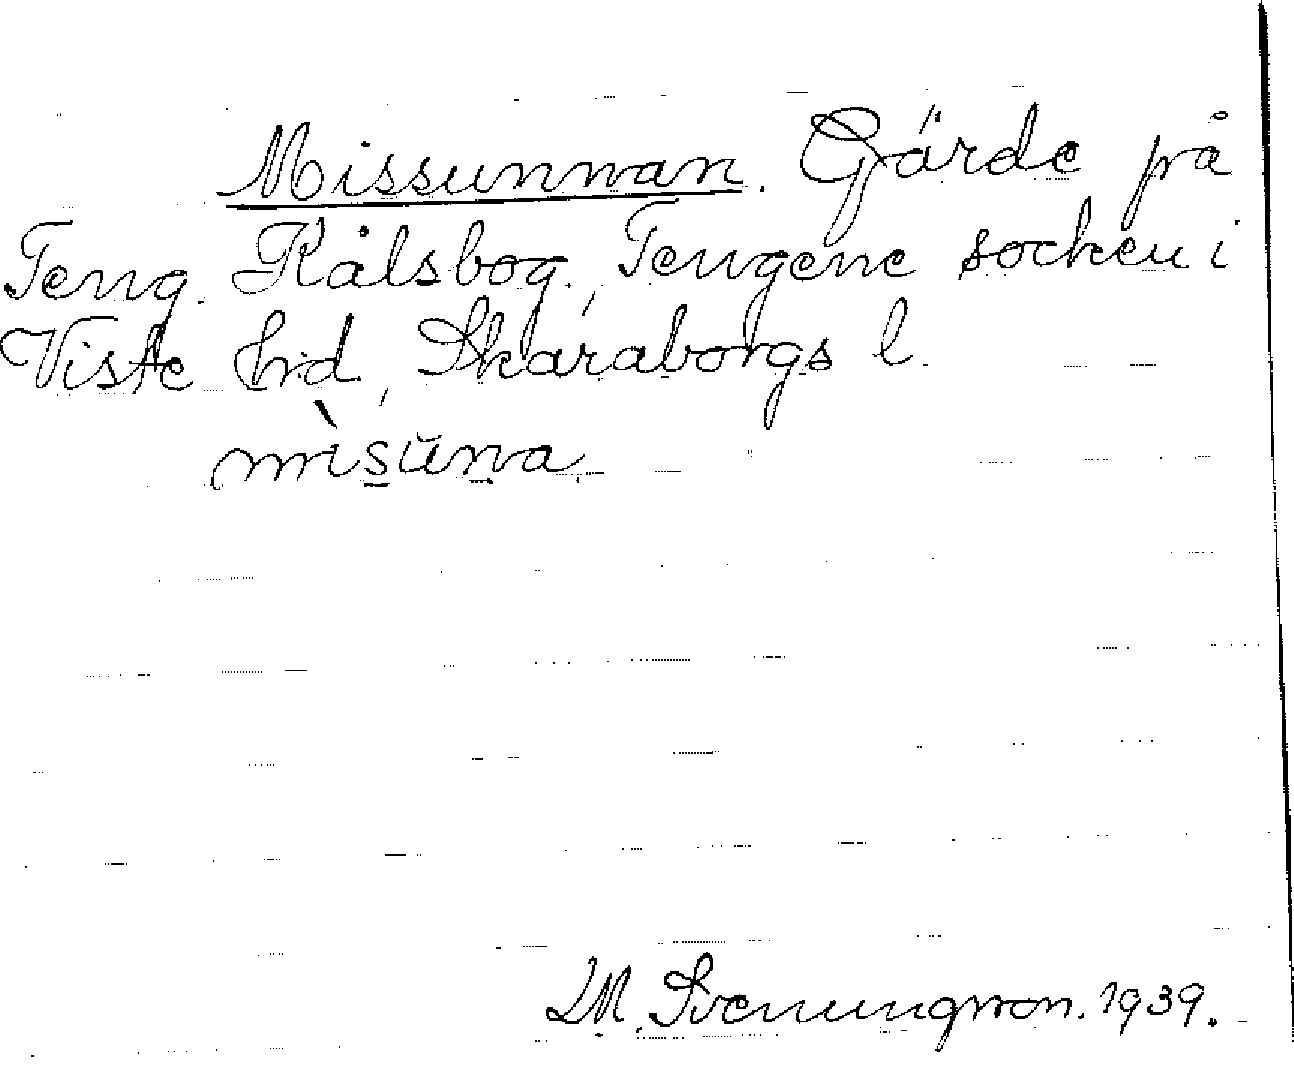 Missunnan. Gärde på
Teng. Kålsbog, Tengene socken i
Viste hrd, Skaraborgs l.
mìs̲ŭn̲a
D.M. Svenungsson. 1939.